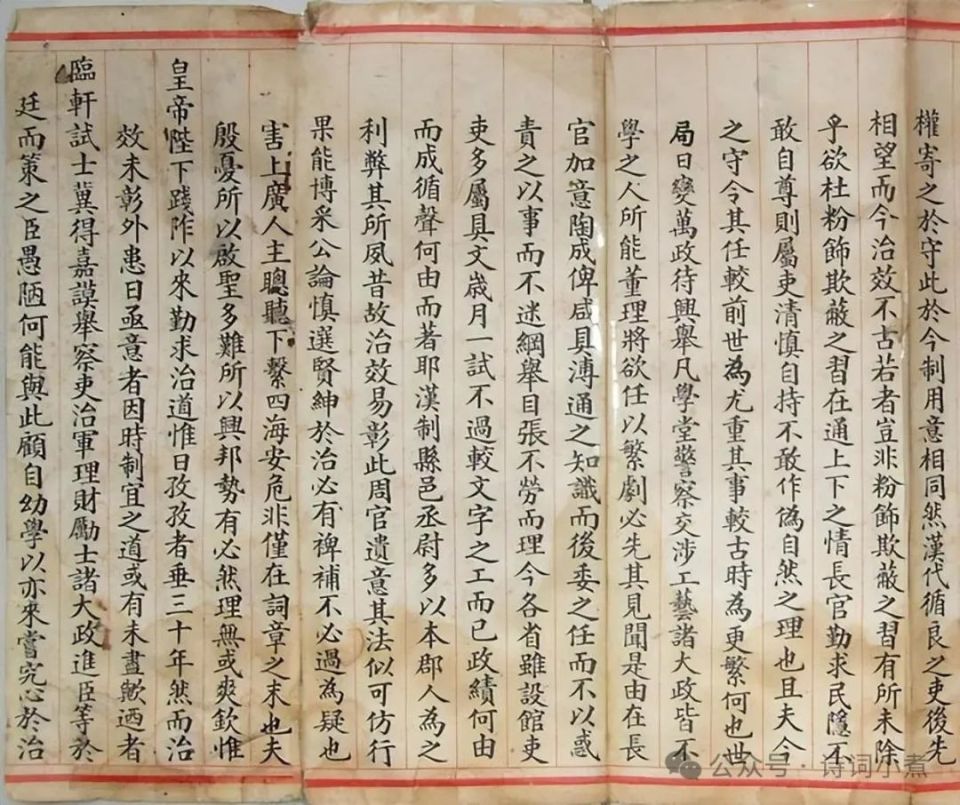 權寄之於守此於今制用意相同然漢代循良之吏後先
相望而今治效不古若者豈非粉飾欺蔽之習有所未除
乎欲杜粉飾欺蔽之習在通上下之情長官勤求民隱不
敢自尊則屬吏清慎自持不敢作偽自然之理也且夫今
之守令其任較前世為尤重其事較古時為更繁何也世
局日變萬政待興舉凡學堂警察交涉工藝諸大政皆不
學之人所能董理將欲任以繁劇必先其見聞是由在長
官加意陶成俾咸具溥通之知識而後委之任而不以惑
責之以事而不迷綱舉目張不勞而理今各省雖設館吏
吏多屬具文歲月一試不過較文字之工而已政績何由
而成循聲何由而著耶漢制縣邑丞尉多以本郡人為之
利弊其所夙昔故治效易彰此周官遺意其法似可仿行
果能博采公論慎選賢紳於治必有裨補不必過為疑也
害上廣人主聰聽下繫四海安危非僅在詞章之末也夫
殷憂所以啟聖多難所以興邦勢有必然理無或爽欽惟
皇帝陛下踐阼以來勤求治道惟日孜孜者垂三十年然而治
效未彰外患日亟意者因時制宜之道或有未盡歟迺者
臨軒試士冀得嘉謨舉察吏治軍理財勵士諸大政進臣等於
廷而策之臣愚陋何能與此顧自幼學以亦來嘗究心於治
公众号·诗词小煮